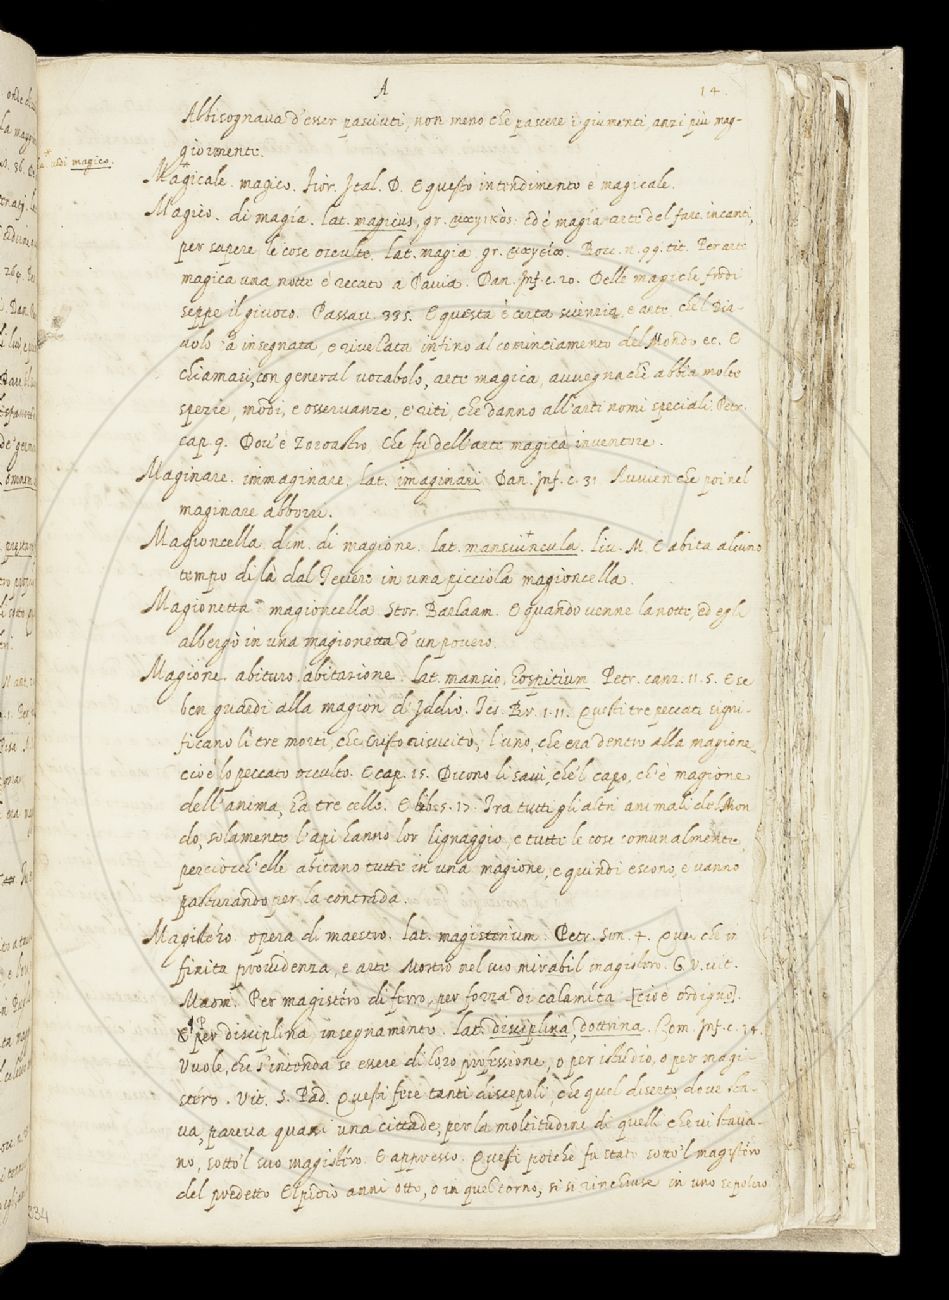 A
14
Abbisognava d'esser pasciuti, non meno che pascere i giumenti anzi più mag-
giormente.
vedi magico.
Magicale. magico. Fior. Ital. D. E questo intendimento è magicale.
Magico. di magía. lat. magicus, gr. μαγικός. Ed è magía, arte del fare incanti,
per sapere le cose occulte. lat. magia gr. μαγεία. Bocc. n. 99. tit. Per arte
magica una notte è recato a Pavia. Dan. Inf. c. 20. Delle magiche frodi
seppe il giuoco. Passav. 335. E questa è certa scienzia, e arte, che 'l Dia-
volo à insegnata, e rivelata infino al cominciamento del Mondo ec. E
chiamasi, con general vocabolo, arte magica, avvegnachè abbia molte
spezie, modi, e osservanze, e riti, che danno all'arti nomi speciali. Petr.
cap. 9. Dov' è Zoroastro, che fu dell'arte magica inventore.
Maginare. immaginare, lat. imaginari. Dan. Inf. c. 31 Avvien che poi nel
maginare abborri.
Magioncella. dim. di magione. lat. mansiuncula. Liv. M. E abita alcuno
tempo di là dal Tevere in una picciola magioncella.
Magionetta magioncella. Stor. Barlaam. E quando venne la notte, ed egli
albergò in una magionetta d'un povero.
Magione. abituro, abitazione. lat. mansio, hospitium. Petr. canz. 11. 5. E se
ben guardi alla magion di Iddio. Tes. Br. 1. 11. Questi tre peccati signi-
ficano li tre morti, che Cristo risuscitò, l'uno, che era dentro alla magione,
cioè lo peccato occulto. E cap. 15. Dicono li savi, che 'l capo, ch'è magione
dell'anima, ha tre celle. E lib. 5. 17. Tra tutti gli altri animali del Mon
do, solamente l'api hanno lor lignaggio, e tutte le cose comunalmente,
perciocch' elle abitano tutte in una magione, e quindi escono, e vanno
pasturando per la contrada.
Magistéro. opera di maestro. lat. magisterium. Petr. Son. 4. Que' che in
finita providenza, e arte Mostrò nel suo mirabil magistero. G. V. vit.
Maom. Per magistéro di ferro, per forza di calamita [cioè ordigno].
E per disciplina, insegnamento. lat. disciplina, dottrina. Com. Inf. c. 24.
Vuole, che s'intenda se essere di loro professione, o per istudio, o per magi-
stéro. Vit. S. Pad. Questi fece tanti discepoli, che quel diserto, dove sta-
va, pareva quasi una cittade, per la moltitudine di quelli che vi stava-
no, sotto 'l suo magistéro. E appresso. Questi poichè fu stato sotto 'l magistéro
del predetto Elpidio anni otto, o in quel torno, sì si rinchiuse in uno sepolcro
334